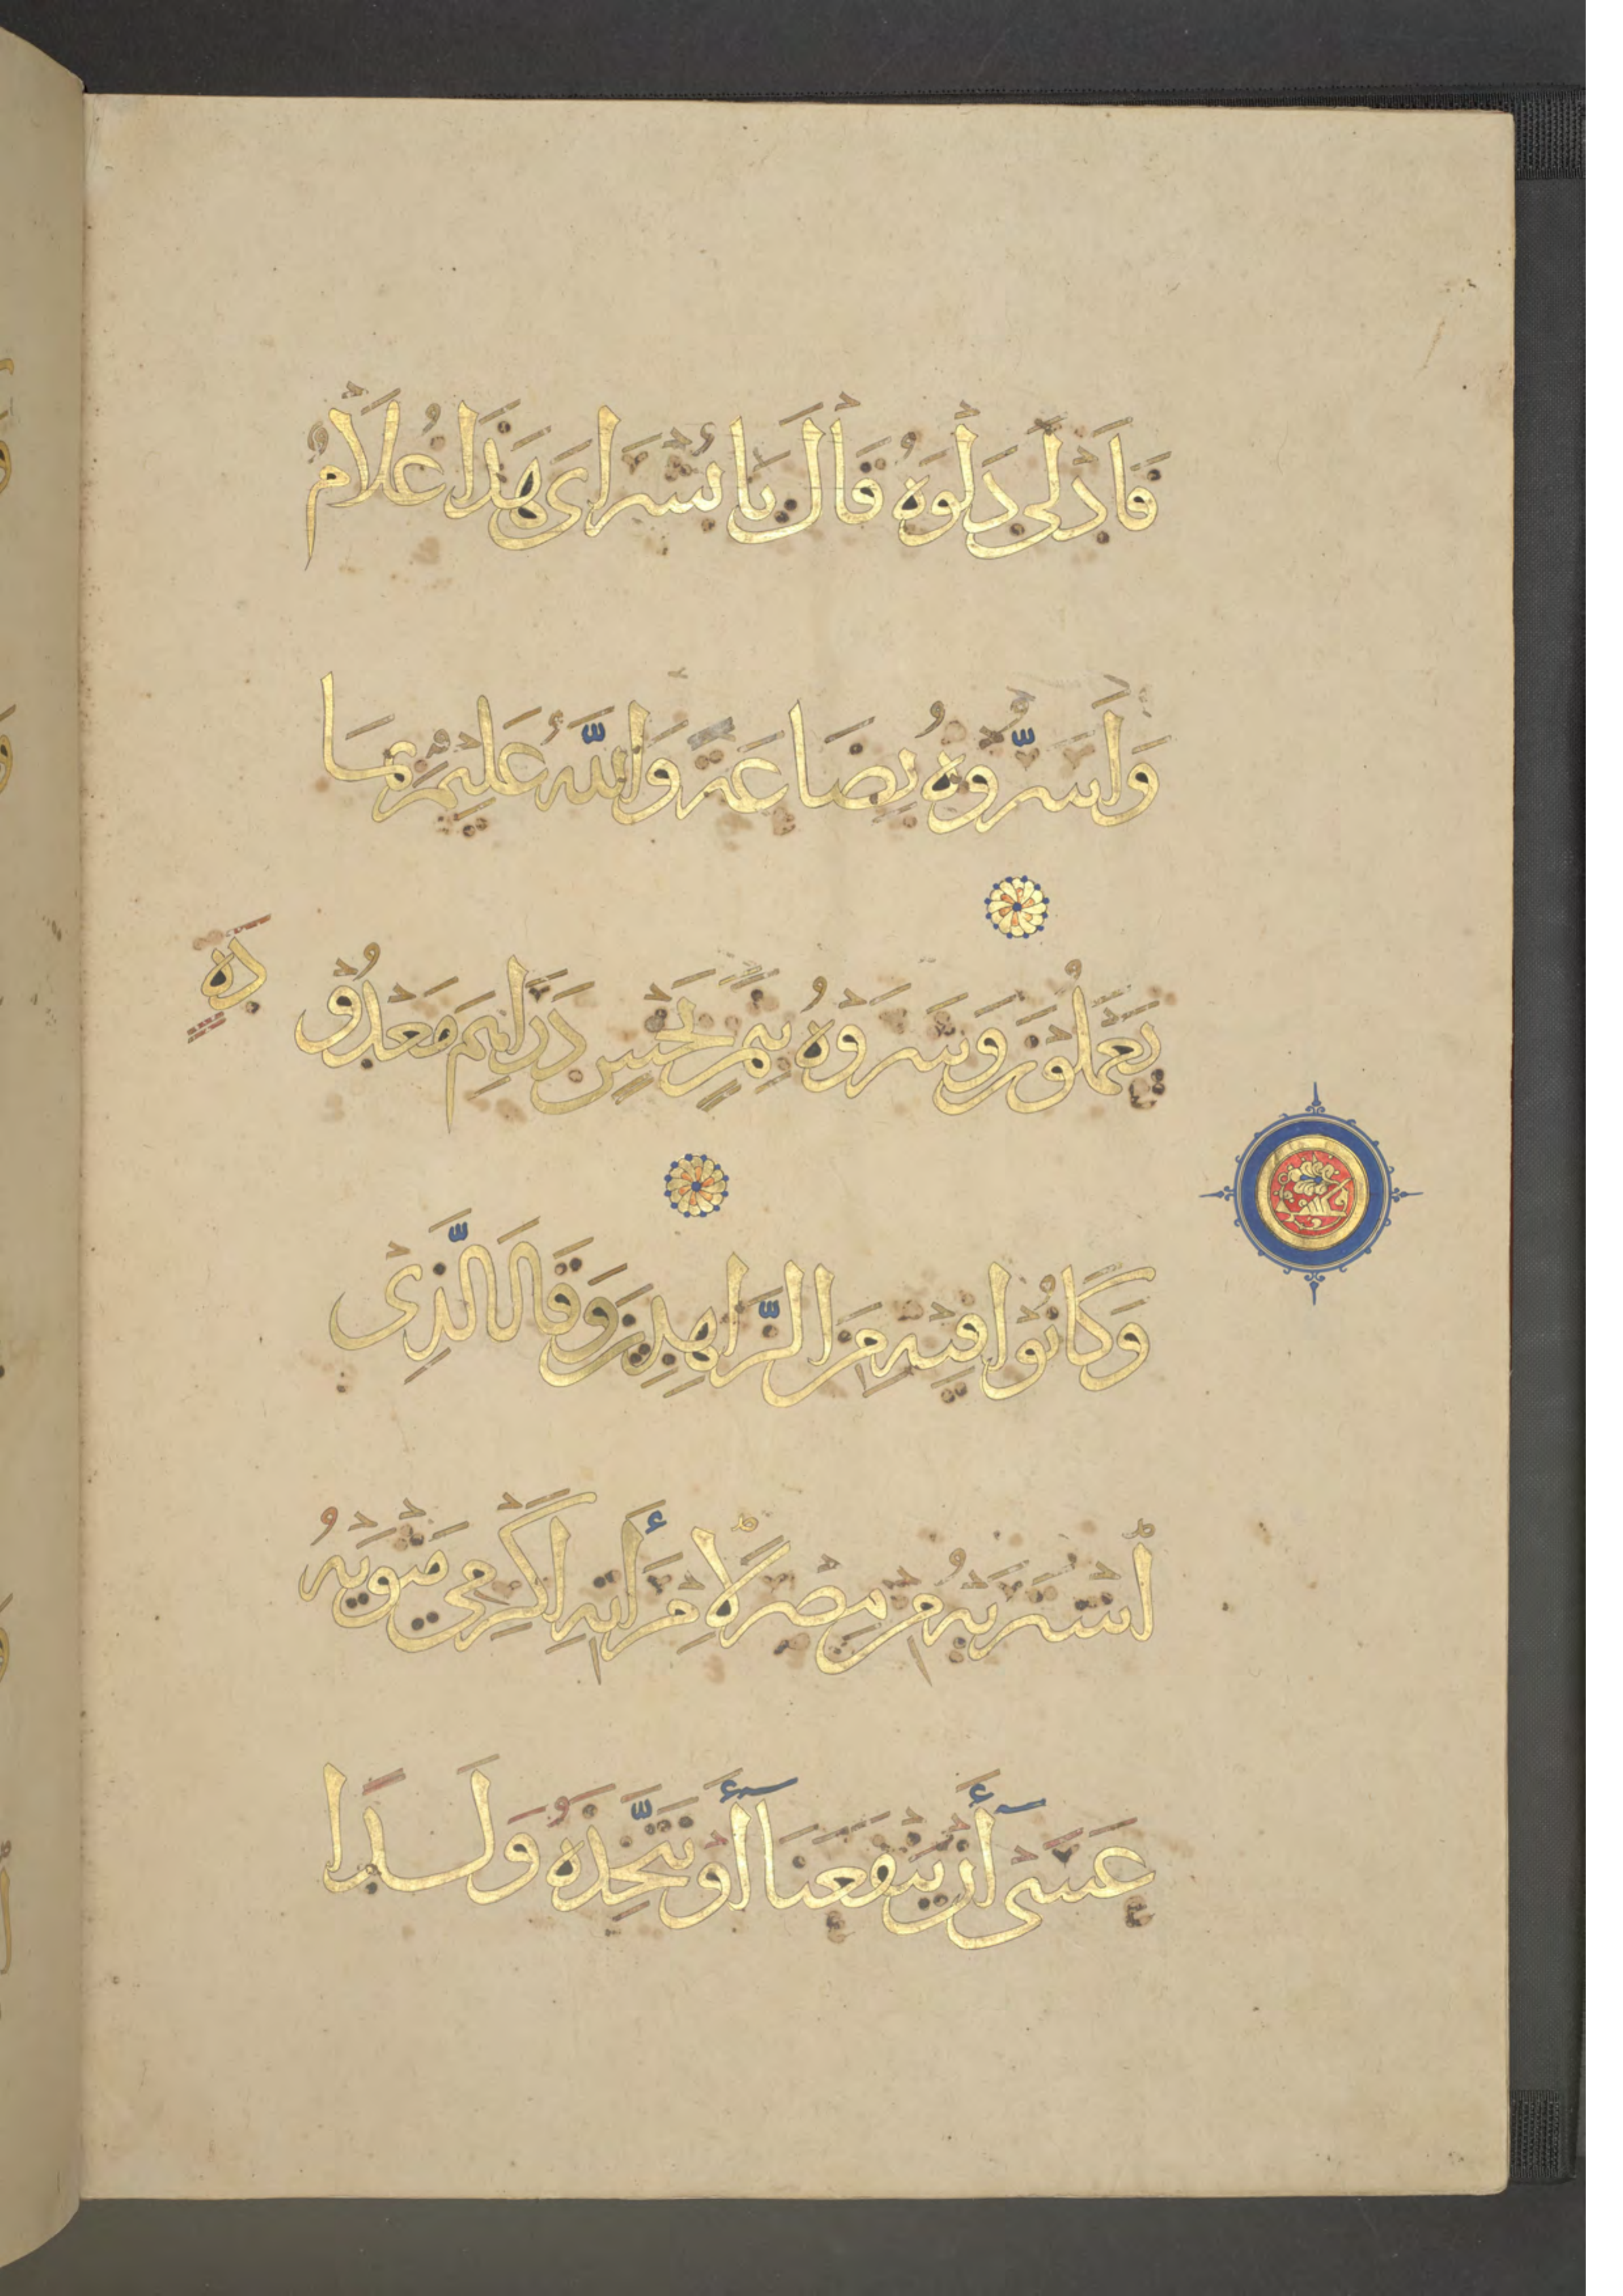 فَأَدْلَى دَلْوَهُ قَالَ يَا بُشْرَاىَ هَذَا غُلَامٌ
وَأَسَرُّوهُ بِضَاعَةً وَاللَّهُ عَلِيمٌ بِمَا
يَعْمَلُونَ وَشَرَوْهُ بِثَمَنٍ بَخْسٍ دَرَاهِمَ مَعْدُودَةٍ
وَكَانُوا فِيهِ مِنَ الزَّاهِدِينَ وَقَالَ الَّذِى
اشْتَرَيهُ مِنْ مِصْرَ لِامْرَأَتِهِ أَكْرِمِى مَثْوَيهُ
عَسَى أَنْ يَنْفَعَنَا أَوْ نَتَّخِذَهُ وَلَدًا